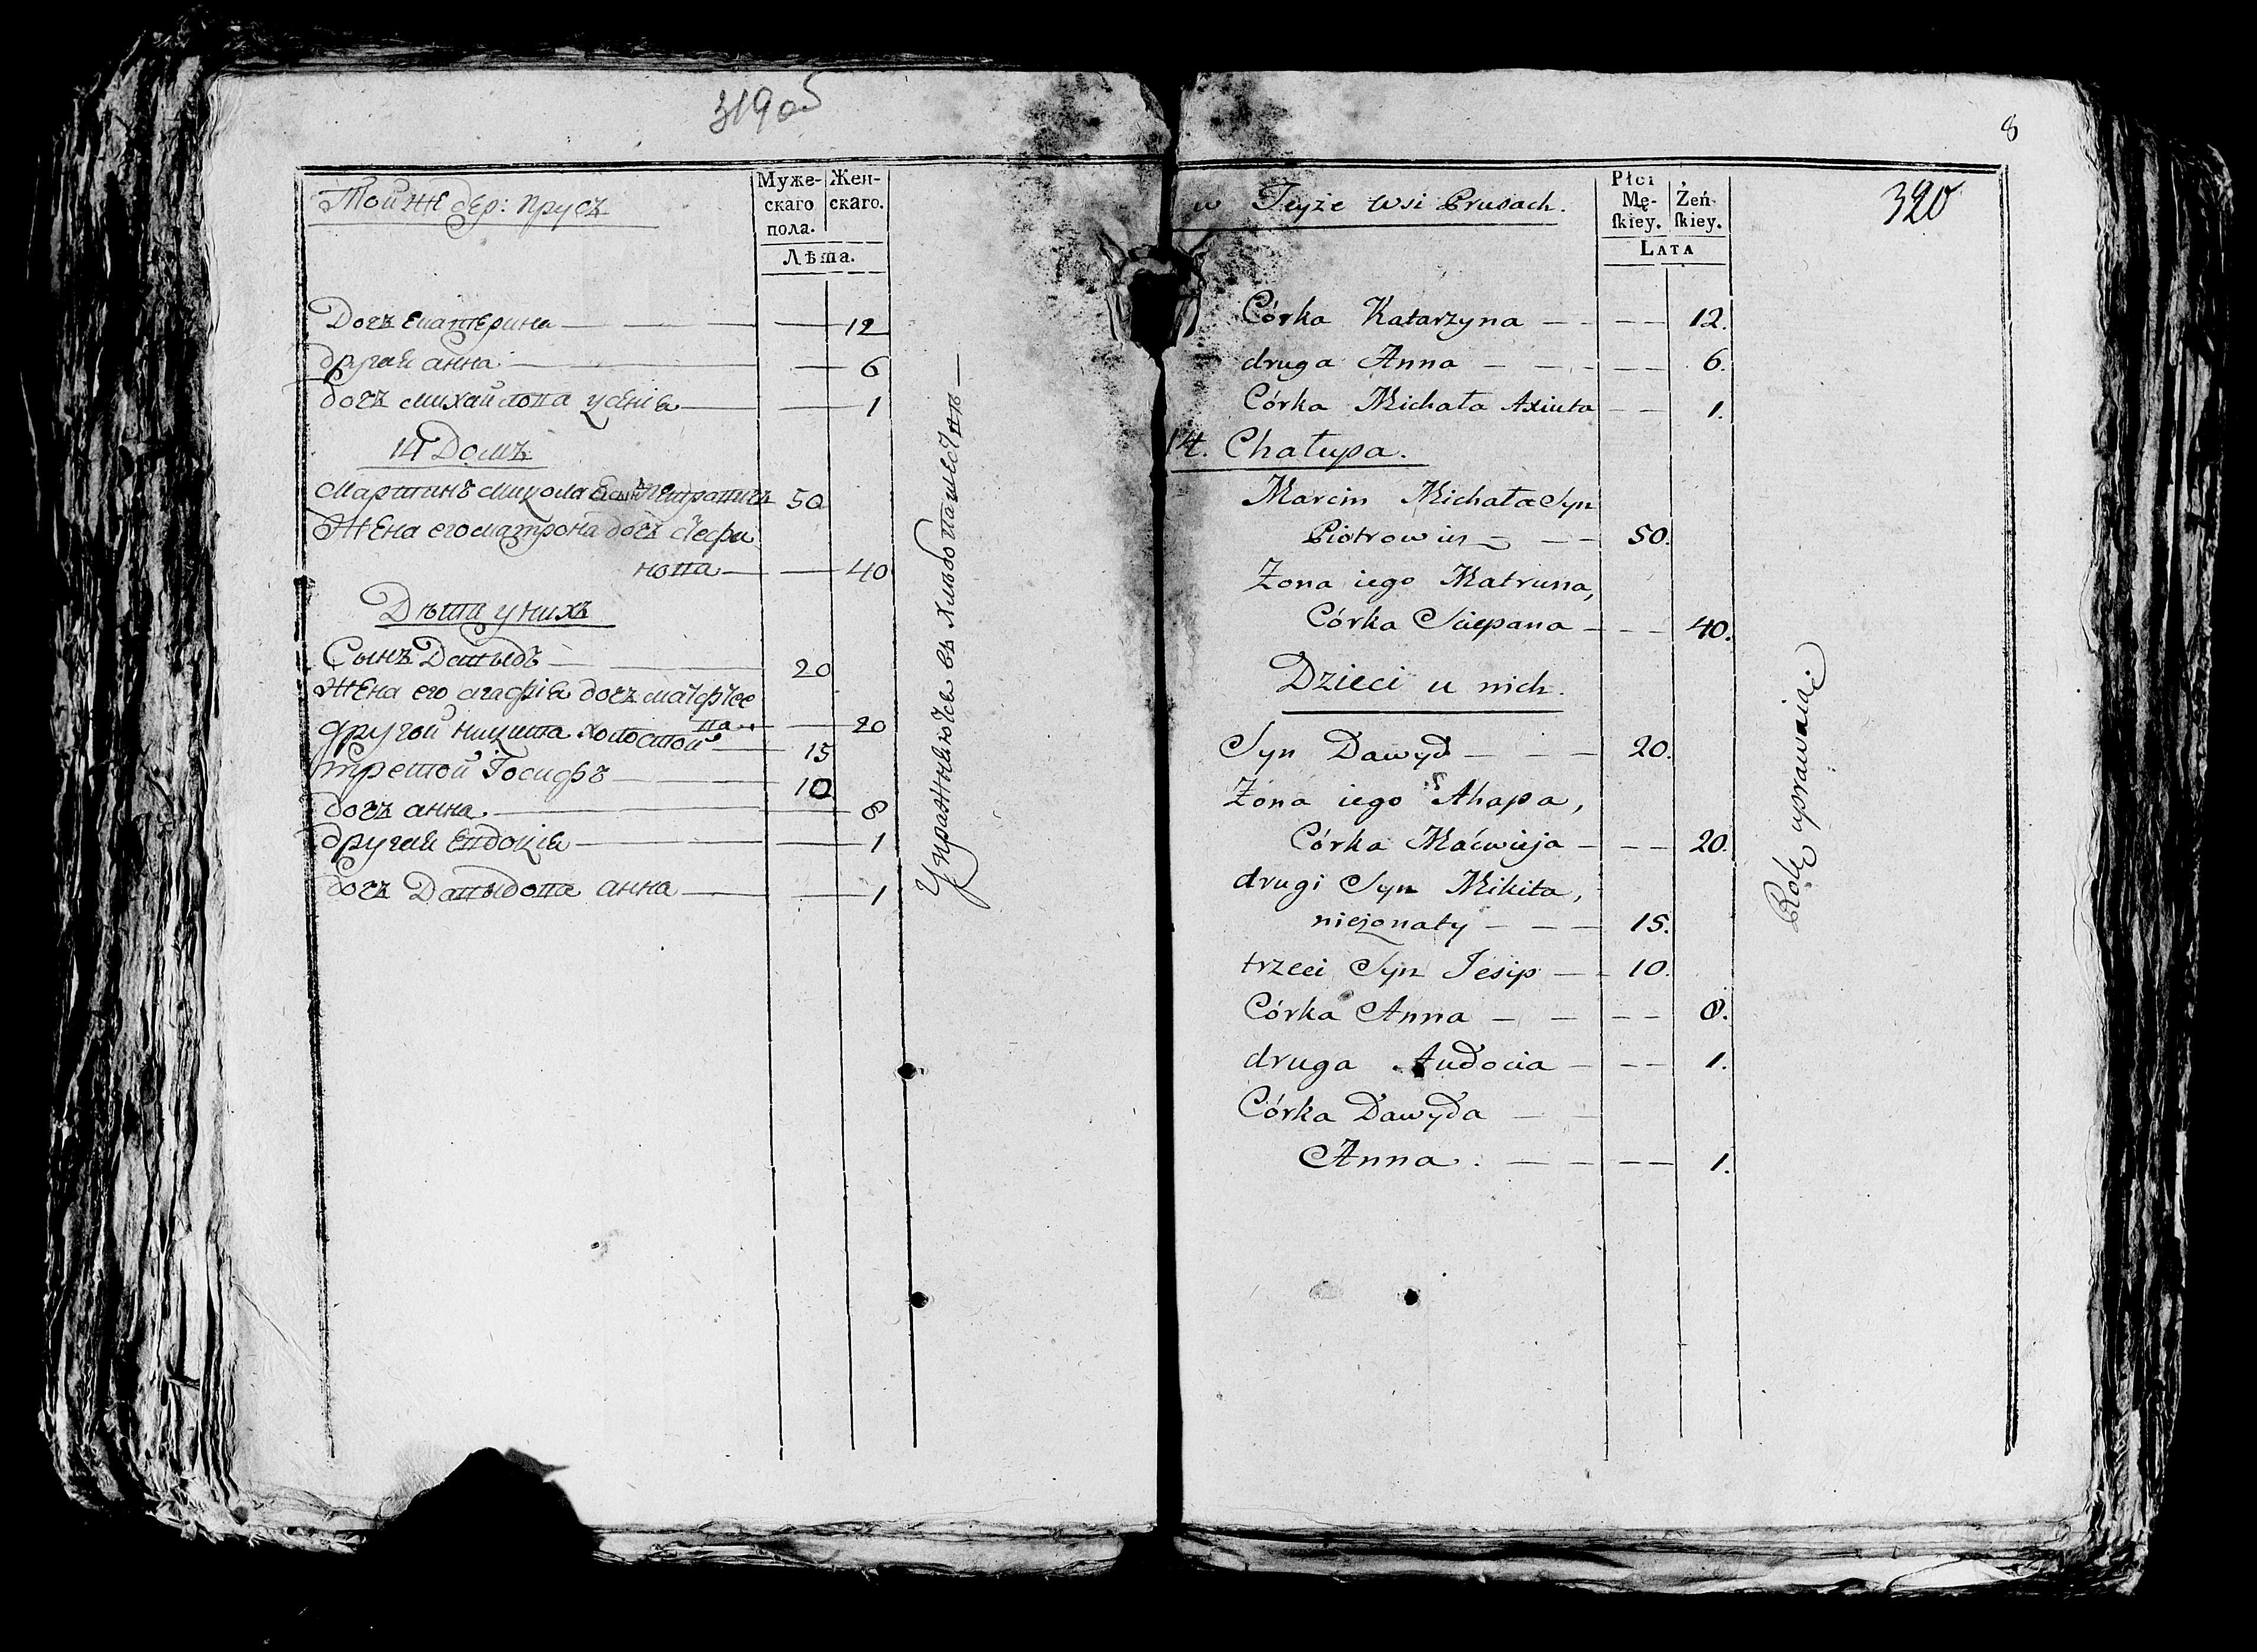 319об
Тойже дер: Прусъ
Муже-
скаго
пола.
Жен-
скаго.
Лѣта.
Дочъ Екатерина — 12
другая анна — 6
дочъ михайлова Усения — 1
14 Домъ
Мартинъ микола сынъ Петровичъ 50
Жена его матрона дочъ Стефа
нова — 40
Дѣти у нихъ
Сынъ Давыдъ — 20
Жена его агафия дочъ матфее
ва — 20
другой никита холостой — 15
третой Iосифъ — 10
дочъ анна — 8
другая Евдокия — 1
дочъ Давыдова анна — 1
Упражняются въ хлѣбопашествѣ —
8
320
w Teyże wsi Prusach.
Płci
Mę-
ſkiey.
Żeń-
ſkiey.
LATA
Córka Katarzyna — 12.
druga Anna — 6.
Córka Michała Axiuta — 1.
14. Chałupa.
Marcin Michała Syn
Piotrowicz — 50.
Żona iego Matruna,
Córka Sciepana — 40.
Dzieci u nich.
Syn Dawyd — 20.
Żona iego Ahapa,
Córka Maćwieja — 20.
drugi Syn Mikita,
nieżonaty — 15.
trzeci Syn Jesip — 10.
Córka Anna — 8.
druga Audocia — 1.
Córka Dawyda —
Anna. — 1.
Rolę uprawiaią